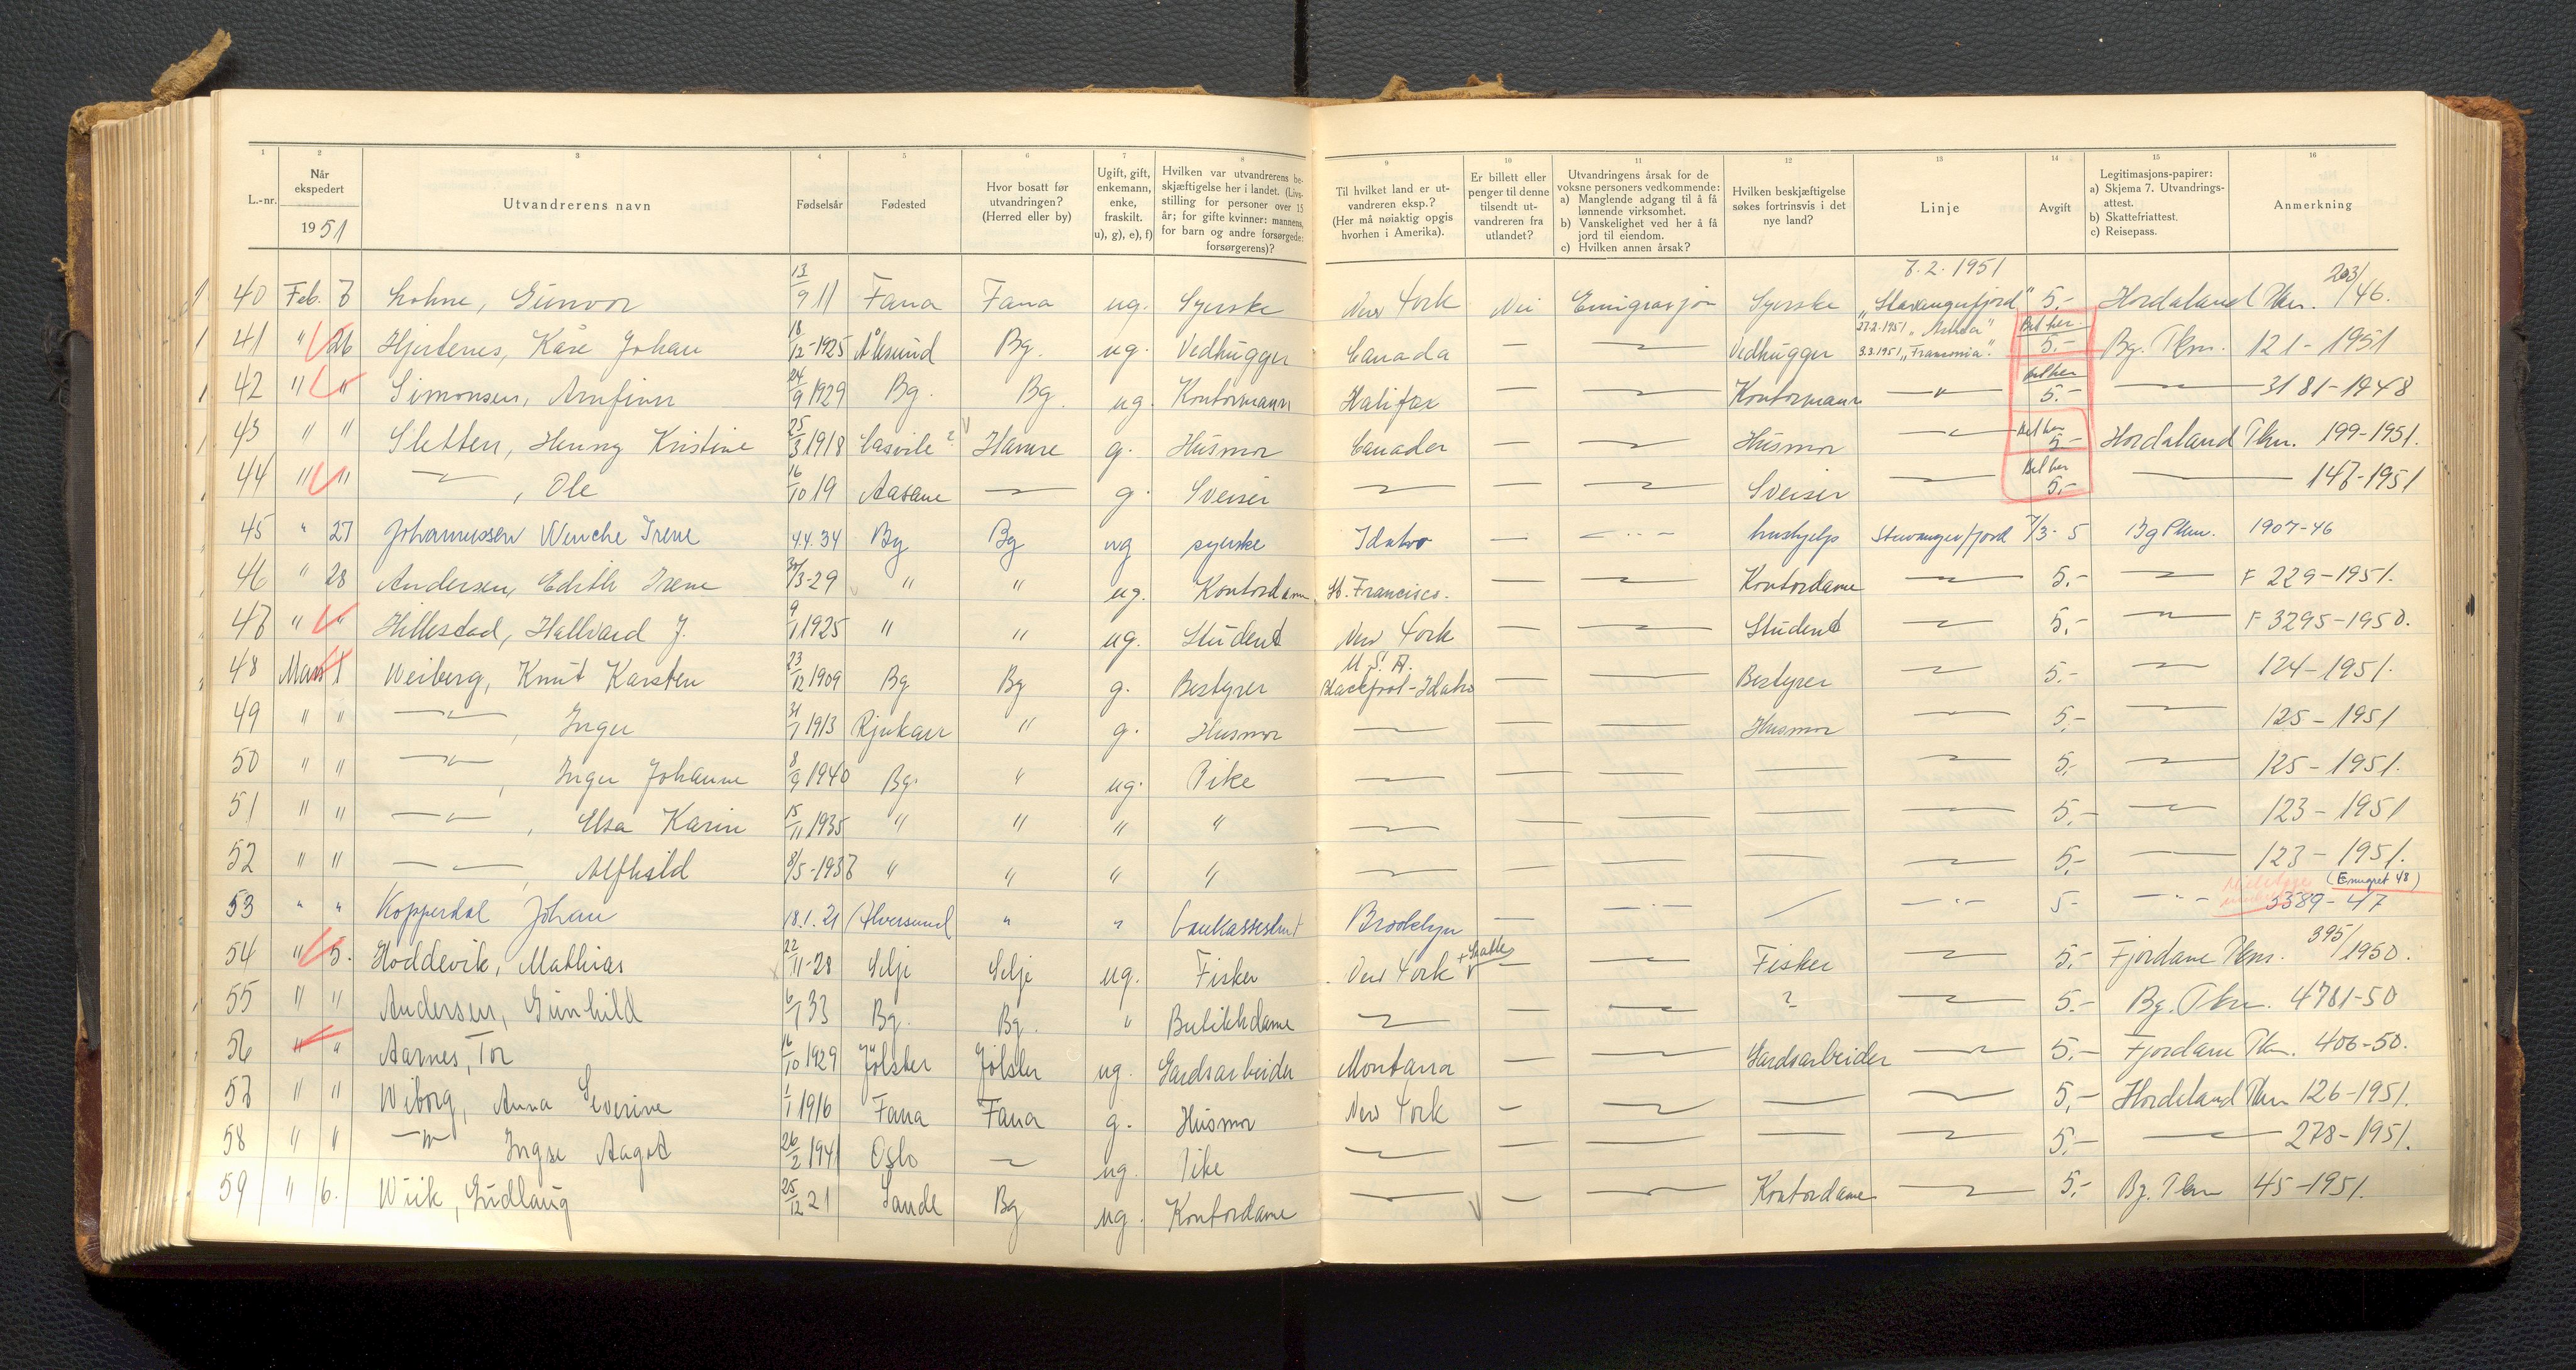 1 2 3 4 5 6 7 8 9 10 11 12 13 14 15 16
L.-nr. | Når ekspedert 1951 | Utvandrerens navn | Fødselsår | Fødested | Hvor bosatt før utvandringen? (Herred eller by) | Ugift, gift, enkemann, enke, fraskilt. u), g), e), f) | Hvilken var utvandrerens beskjæftigelse her i landet. (Livsstilling for personer over 15 år; for gifte kvinner: mannens, for barn og andre forsørgede: forsørgerens)? | Til hvilket land er utvandreren eksp.? (Her må nøiaktig opgis hvorhen i Amerika). | Er billett eller penger til denne tilsendt utvandreren fra utlandet? | Utvandringens årsak for de voksne personers vedkommende: a) Manglende adgang til å få lønnende virksomhet. b) Vanskelighet ved her å få jord til eiendom. c) Hvilken annen årsak? | Hvilken beskjæftigelse søkes fortrinsvis i det nye land? | Linje | Avgift | Legitimasjons-papirer: a) Skjema 7. Utvandringsattest. b) Skattefriattest. c) Reisepass. | Anmerkning
7.2.1951
40 Feb. 7 Lohne, Gunvor 13/9 11 Fana Fana ug. Syerske New York Nei Emigrasjon Syerske "Stavangerfjord" 5.- Hordaland Pkm. 203/46.
41 " 26 Hjertenes, Kåre Johan 18/12-1925 Ålesund Bg. ug. Vedhugger Canada — — Vedhugger 27.2.1951 "Astrea" 3.3.1951 "Franconia". Bet her 5.- Bg. Pkm. 121-1951
42 " " Simonsen, Arnfinn 24/9 1929 Bg. Bg ug. Kontormann Halifax — — Kontormann —"— Bet her 5.- — 3181-1948
43 " " Sletten, Henny Kristine 25/3 1918 ? Hamre g. Husmor Canada — — Husmor — Bet her 5- Hordaland Pkm. 199-1951.
44 " " —, Ole 16/10 19 Aasane — g. Sveiser — — — Sveiser — Bet her 5.- — 147-1951
45 " 27 Johannessen Wenche Irene 4.4.34 Bg Bg ug syerske Idaho — — hushjelp Stavangerfjord 7/3- 5 Bg Pkm. 1907-46
46 " 28 Andersen, Edith Irene 30/3-29 " " ug. Kontordame St. Francisco. — — Kontordame — 5.- — F 229-1951.
47 " " Hillestad, Hallvard J. 9/1 1925 " " ug. Student New York — — Student — 5.- — F 3295-1950.
48 Mars 1 Weiberg, Knut Karsten 23/12 1909 Bg Bg g. Bestyrer U.S.A. Blackfoot-Idaho — — Bestyrer — 5.- — 124-1951.
49 " " —"—, Inger 31/7 1913 Rjukan " g. Husmor — — — Husmor — 5.- — 125-1951
50 " " —"—, Inger Johanne 8/9 1940 Bg. " ug. Pike — — — — — 5.- — 125-1951.
51 " " —"—, Elsa Karin 15/11 1935 " " " " — — — — — 5.- — 123-1951
52 " " —"—, Alfhild 8/5-1937 " " " " — — — — — 5.- — 123-1951.
53 " " Kopperdal Johan 18.1.21 Alversund " " bankassistent Brooklyn — —"— / —"— 5- —"— (Emigret 48) 3389-47
54 " 5. Hoddevik, Mathias 22/11-28 Selje Selje ug. Fisker New York + Seattle — — Fisker — 5.- Fjordane Pkm. 395/1950.
55 " " Andersen, Gunhild 6/1 33 Bg. Bg. " Butikkdame — — — ? — 5.- Bg. Pkm. 4781-50
56 " " Aarnes, Tor 16/10 1929 Jölster Jölster ug. Gardsarbeider Montana — — Gardsarbeider — 5.- Fjordane Pkm. 406-50.
57 " " Wiborg, Anna Severine 1/1 1916 Fana Fana g. Husmor New York — — — — 5.- Hordaland Pkm 126-1951.
58 " " —"— Ingse Aagot 26/2 1941 Oslo — ug. Pike — — — — — 5.- — 278-1951.
59 " 6. Wiik, Gudlaug 25/12 21 Sande Bg ug. Kontordame — — — Kontordame — 5.- Bg. Pkm 45-1951.